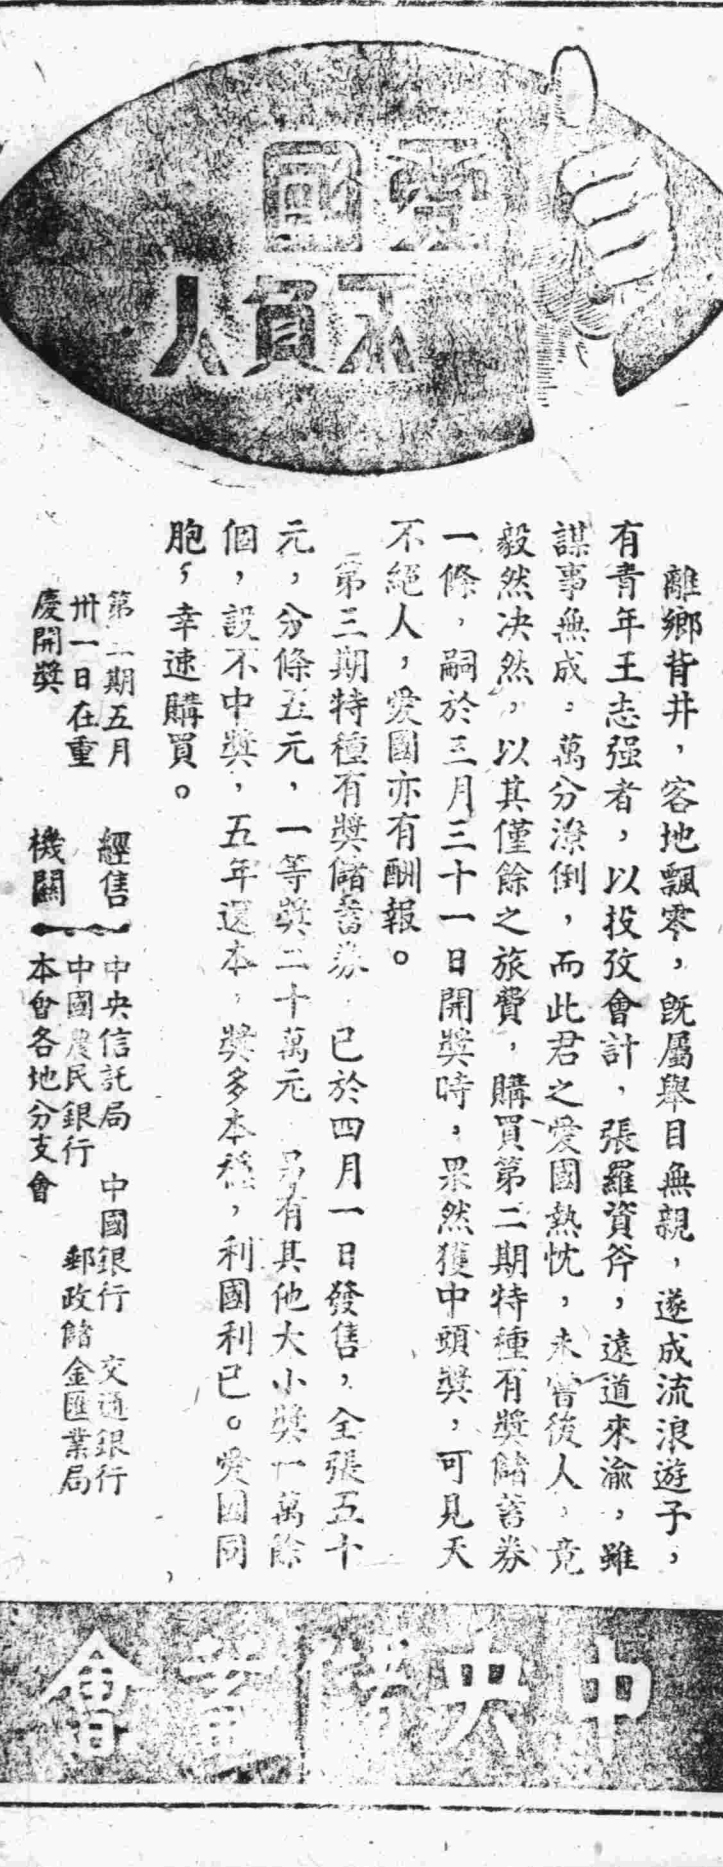 愛國
不負人
離鄉背井，客地飄零，既屬舉目無親，遂成流浪遊子，
有青年王志强者，以投攷會計，張羅資斧，遠道來渝，雖
謀事無成，萬分潦倒，而此君之愛國熱忱，未嘗後人，竟
毅然決然，以其僅餘之旅費，購買第二期特種有獎儲蓄券
一條，嗣於三月三十一日開獎時，果然獲中頭獎，可見天
不絕人，愛國亦有酬報。
第三期特種有獎儲蓄券 已於四月一日發售，全張五十
元，分條五元，一等獎二十萬元 另有其他大小獎一萬餘
個，設不中獎，五年還本，獎多本穩，利國利己。愛國同
胞，幸速購買。
第 期五月
卅一日在重
慶開獎
經售
機關
中央信託局 中國銀行 交通銀行
中國農民銀行 郵政儲金匯業局
本會各地分支會
中央儲蓄會